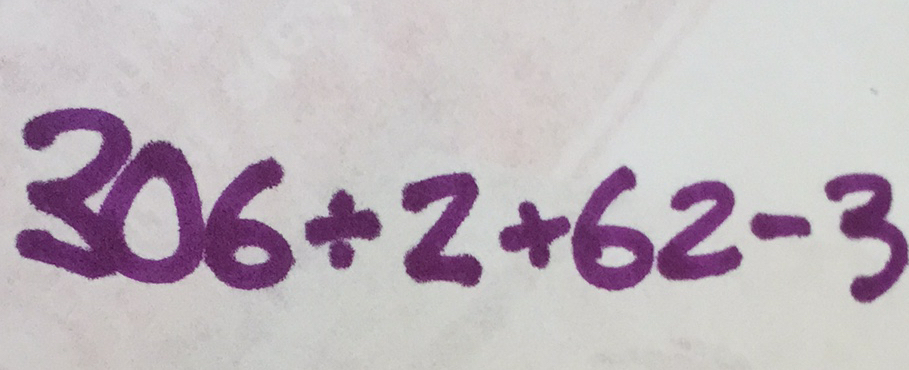 306÷2+62-3